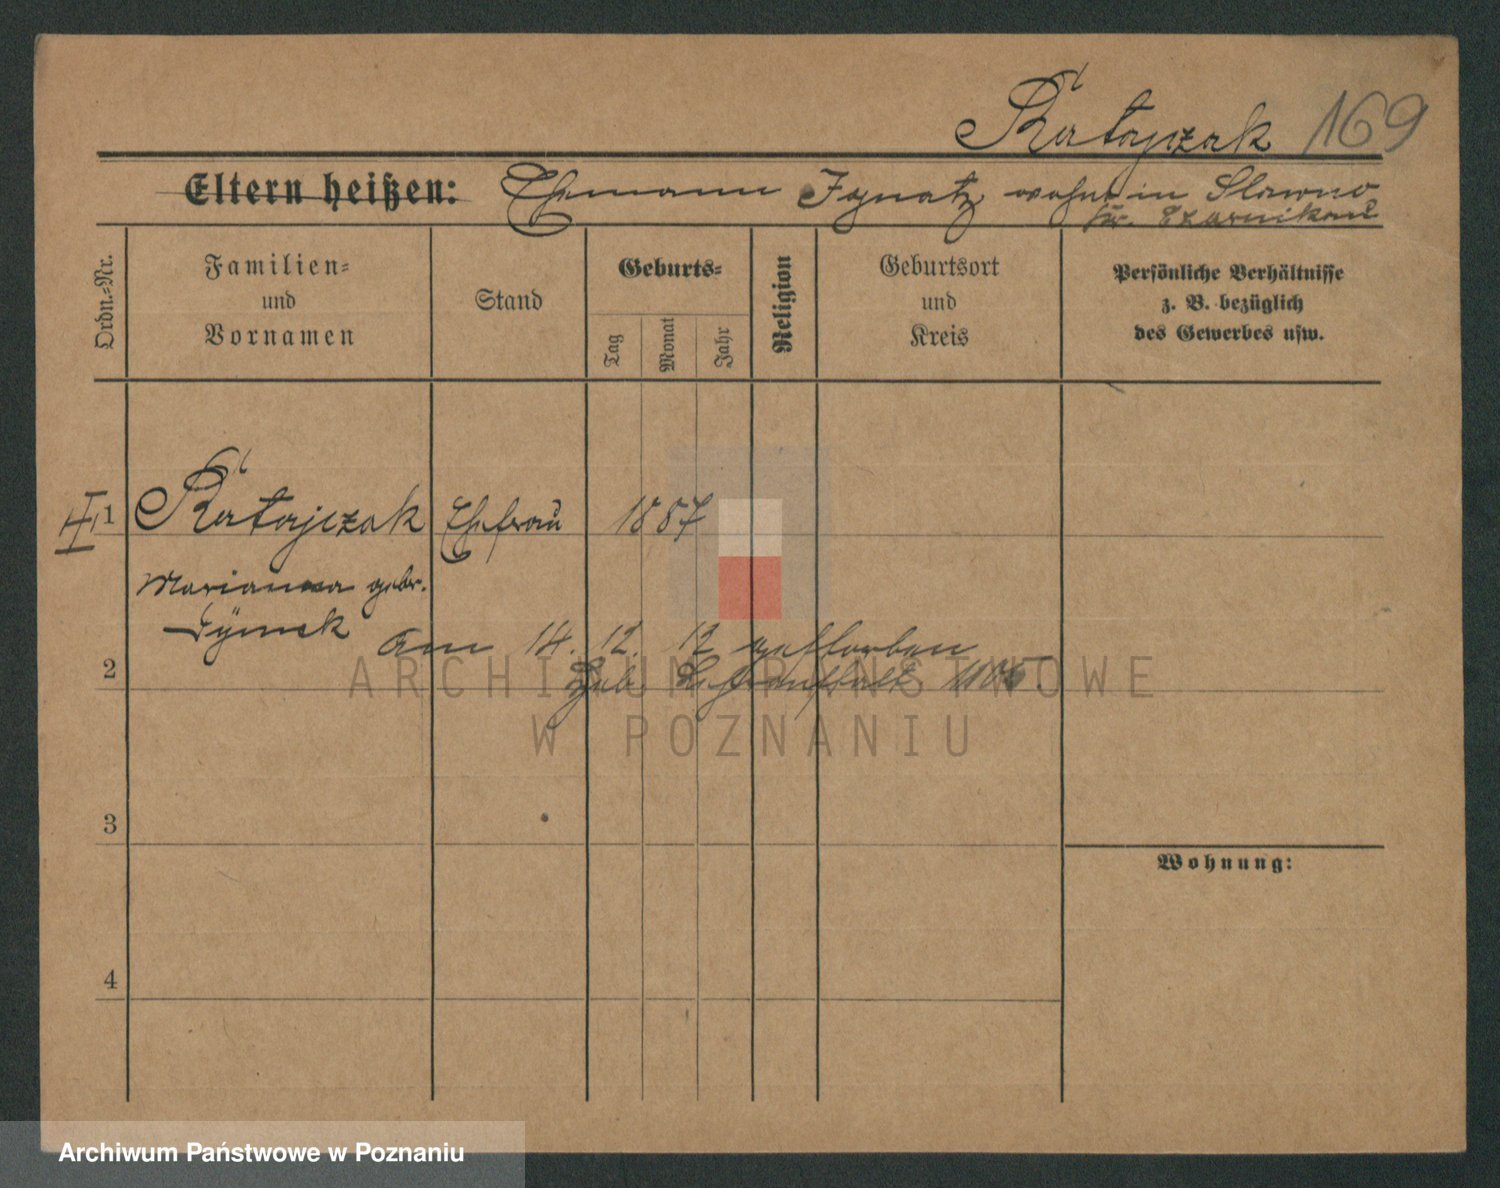 Ratajczak 169
Eltern heißen: Ehemann Ignatz wohnt in Slawno
Kr. Czarnikau
Ordn.-Nr.
Familien-
und
Vornamen
Stand
Geburts-
Tag
Monat
Jahr
Religion
Geburtsort
und
Kreis
Persönliche Verhältnisse
z. B. bezüglich
des Gewerbes usw.
II 1 Ratajczak Ehefrau 1887
Marianna gebr.
Dymek
am 14. 12. 12 gestorben
2
ARCHIWUM PAŃSTWOWE
W POZNANIU
3
Wohnung:
4
Archiwum Państwowe w Poznaniu